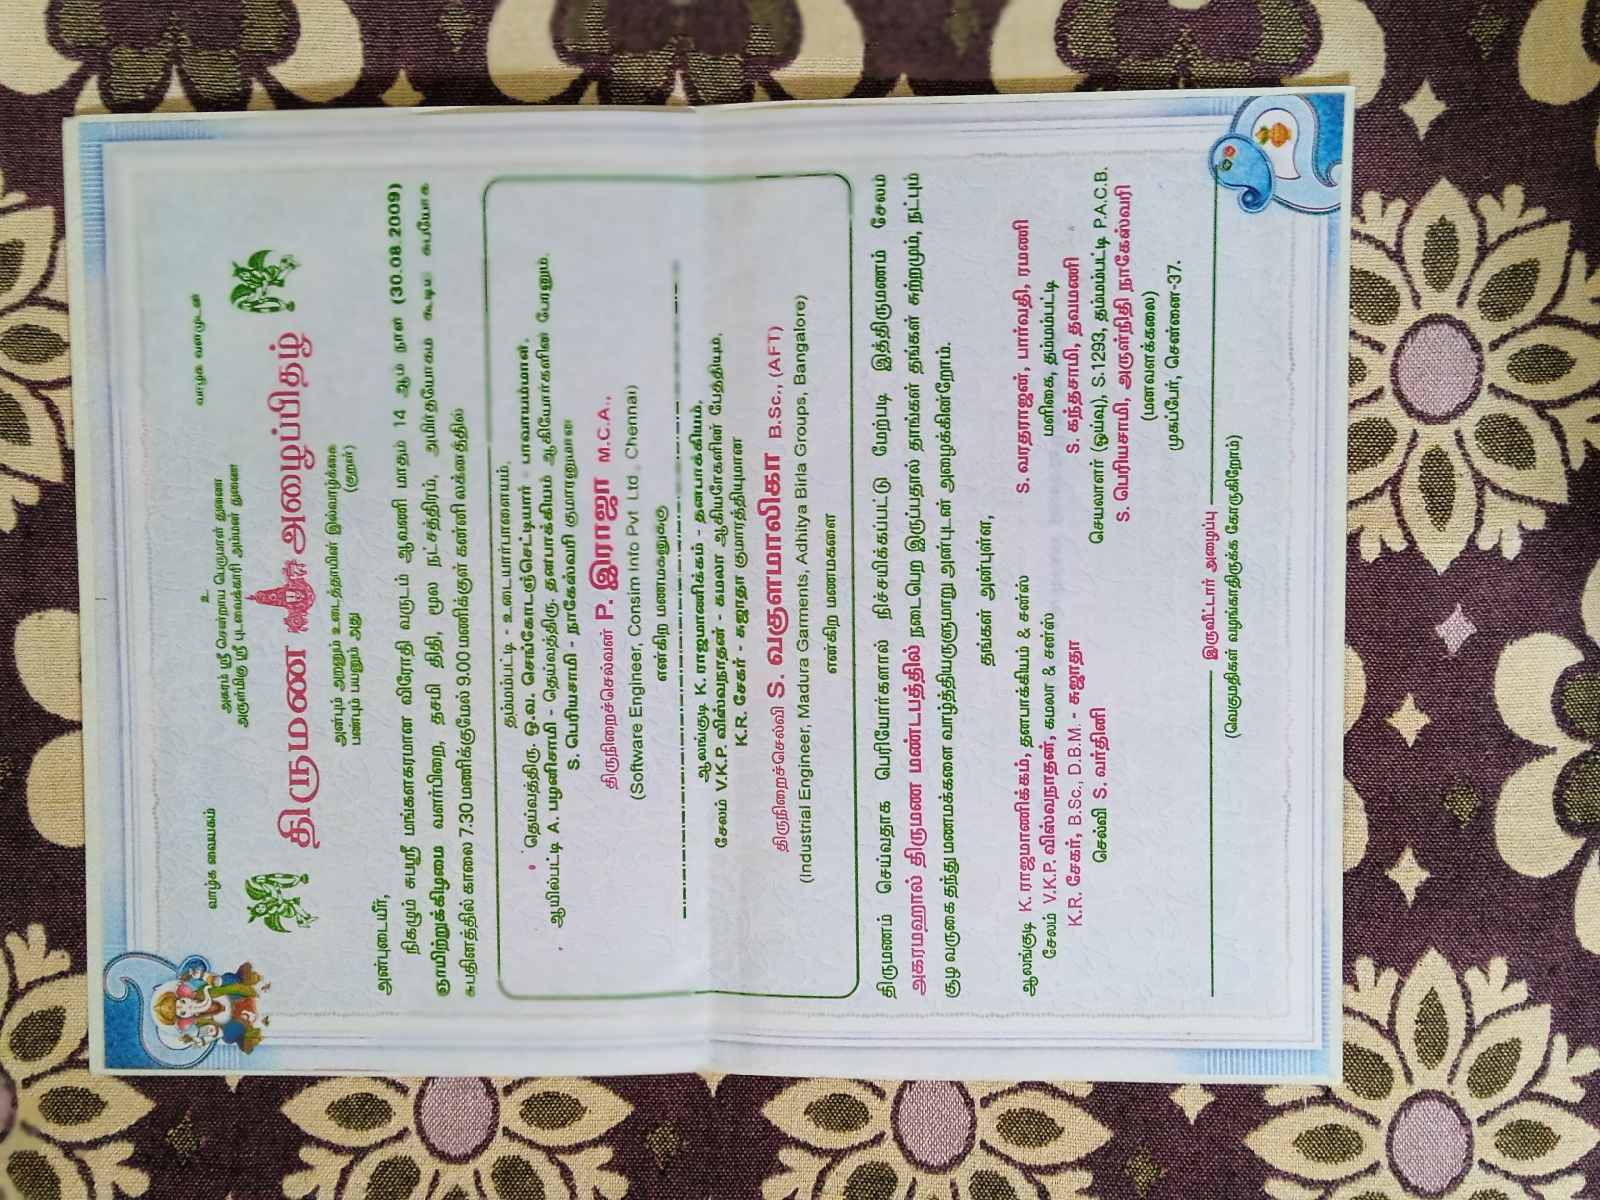 உ
வாழ்க வையகம்
வாழ்க வளமுடன்
அகரம் ஸ்ரீ சென்றாய பெருமாள் துணை
அருள்மிகு ஸ்ரீ புடவைக்காரி அம்மன் துணை
திருமண அழைப்பிதழ்
அன்பும் அறனும் உடைத்தாயின் இல்வாழ்க்கை
பண்பும் பயனும் அது (குறள்)
அன்புடையீர்,
நிகழும் சுபஸ்ரீ மங்களகரமான விரோதி வருடம் ஆவணி மாதம் 14 ஆம் நாள் (30.08.2009)
ஞாயிற்றுக்கிழமை வளர்பிறை, தசமி திதி, மூல நட்சத்திரம், அமிர்தயோகம் கூடிய சுபயோக
சுபதினத்தில் காலை 7.30 மணிக்குமேல் 9.00 மணிக்குள் கன்னி லக்னத்தில்
தம்மம்பட்டி - உடையார்பாளையம்,
தெய்வத்திரு. ஒ.வ. செங்கோடஞ்செட்டியார் - பாவாயம்மாள்,
ஆயில்பட்டி A. பழனிசாமி - தெய்வத்திரு. தனபாக்கியம் ஆகியோர்களின் பேரனும்,
S. பெரியசாமி - நாகேஸ்வரி குமாரனுமான
திருநிறைச்செல்வன் P. இராஜா M.C.A.,
(Software Engineer, Consim Info Pvt Ltd., Chennai)
என்கிற மணமகனுக்கு
ஆலங்குடி K. ராஜமாணிக்கம் - தனபாக்கியம்,
சேலம் V.K.P. விஸ்வநாதன் - கமலா ஆகியோகளின் பேத்தியும்,
K.R. சேகர் - சுஜாதா குமாரத்தியுமான
திருநிறைச்செல்வி S. வகுளமாலிகா B.Sc., (AFT)
(Industrial Engineer, Madura Garments, Adhitya Birla Groups, Bangalore)
என்கிற மணமகளை
திருமணம் செய்வதாக பெரியோர்களால் நிச்சயிக்கப்பட்டு மேற்படி இத்திருமணம் சேலம்
அகரமஹால் திருமண மண்டபத்தில் நடைபெற இருப்பதால் தாங்கள் தங்கள் சுற்றமும், நட்பும்
சூழ வருகை தந்து மணமக்களை வாழ்த்தியருளுமாறு அன்புடன் அழைக்கின்றோம்.
தங்கள் அன்புள்ள,
ஆலங்குடி K. ராஜமாணிக்கம், தனபாக்கியம் & சன்ஸ்
சேலம் V.K.P. விஸ்வநாதன், கமலா & சன்ஸ்
K.R. சேகர், B.Sc., D.B.M. - சுஜாதா
செல்வி S. வர்தினி
S. வரதராஜன், பார்வதி, ரமணி
மளிகை, தம்மம்பட்டி
S. கந்தசாமி, தவமணி
செயலாளர் (ஓய்வு), S.1293, தம்மம்பட்டி P.A.C.B.
S. பெரியசாமி, அருள்நிதி நாகேஸ்வரி
(மனவளக்கலை)
முகப்பேர், சென்னை-37.
இருவீட்டார் அழைப்பு
(வெகுமதிகள் வழங்காதிருக்க கோருகிறோம்)